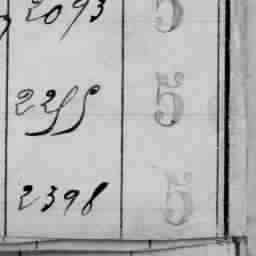 2093 5
2255 5
2398 5